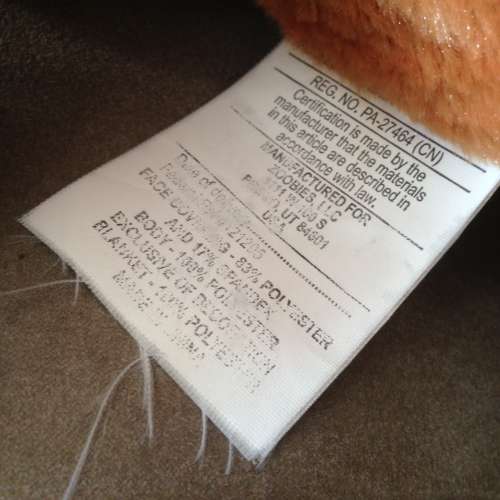 REG. NO. PA-27464 (CN)
Certification is made by the
manufacturer that the materials
in this article are described in
accordance with law.
MANUFACTURED FOR
ZOOBIES, LLC
S
UT 84601
USA
Date of
FACE COVERING - 83% POLYESTER
AND 17% SPANDEX
BODY - 100% POLYESTER
EXCLUSIVE OF DECORATION
BLANKET - 100% POLYESTER
MADE IN CHINA